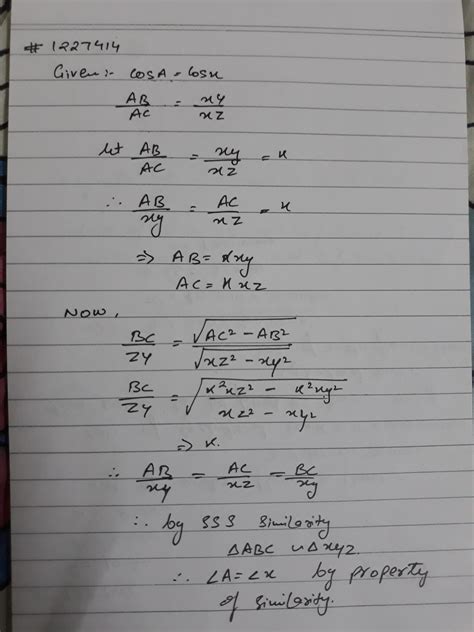 # 1227414
Given :- cosA = cosx
AB/AC = xy/xz
let AB/AC = xy/xz = k
∴ AB/xy = AC/xz = k
⇒ AB = kxy
AC = kxz
NOW,
BC/ZY = √AC² - AB² / √xz² - xy²
BC/ZY = √(k²xz² - k²xy² / xz² - xy²)
⇒ k.
∴ AB/xy = AC/xz = BC/xy
∴ by SSS similarity
ΔABC ∽ Δxyz.
∴ ∠A = ∠x by property
of similarity.